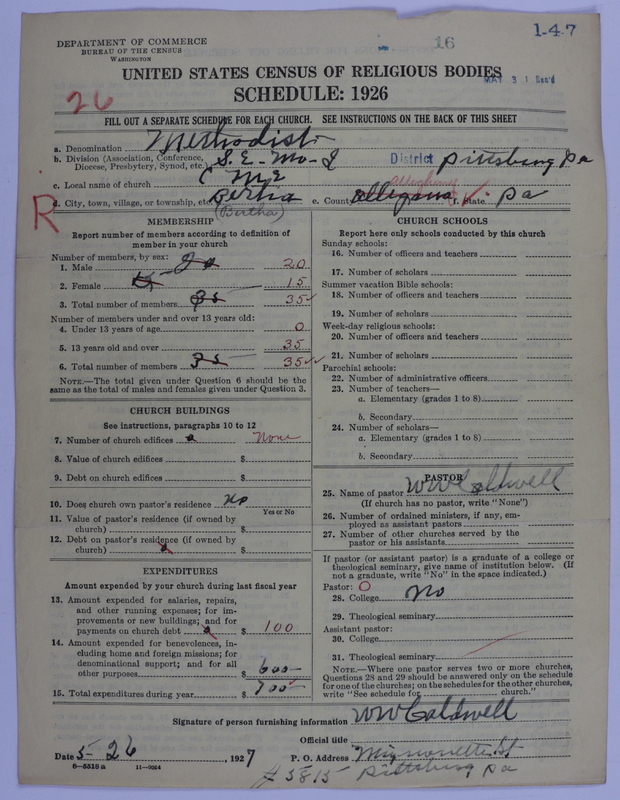 1-4-7
16
DEPARTMENT OF COMMERCE
BUREAU OF THE CENSUS
WASHINGTON
MAY 31 Rec'd
UNITED STATES CENSUS OF RELIGIOUS BODIES
26
SCHEDULE: 1926
FILL OUT A SEPARATE SCHEDULE FOR EACH CHURCH. SEE INSTRUCTIONS ON THE BACK OF THIS SHEET
a. Denomination Methodist
b. Division (Association, Conference, Diocese, Presbytery, Synod, etc.) S. E. Mo - District Pittsburg Pa
c. Local name of church C M E
R
d. City, town, village, or township, etc. Bertha (Bertha) e. County Alleghany f. State Pa
MEMBERSHIP
Report number of members according to definition of member in your church
Number of members, by sex:
1. Male 20 20
2. Female 15 15
3. Total number of members 35 35
Number of members under and over 13 years old:
4. Under 13 years of age 0
5. 13 years old and over 35
6. Total number of members 35 35
NOTE.—The total given under Question 6 should be the same as the total of males and females given under Question 3.
CHURCH BUILDINGS
See instructions, paragraphs 10 to 12
7. Number of church edifices None
8. Value of church edifices $
9. Debt on church edifices $
10. Does church own pastor's residence No
Yes or No
11. Value of pastor's residence (if owned by church) $
12. Debt on pastor's residence (if owned by church) $
EXPENDITURES
Amount expended by your church during last fiscal year
13. Amount expended for salaries, repairs, and other running expenses; for improvements or new buildings; and for payments on church debt $ 100
14. Amount expended for benevolences, including home and foreign missions; for denominational support; and for all other purposes $ 600
15. Total expenditures during year $ 700
CHURCH SCHOOLS
Report here only schools conducted by this church
Sunday schools:
16. Number of officers and teachers
17. Number of scholars
Summer vacation Bible schools:
18. Number of officers and teachers
19. Number of scholars
Week-day religious schools:
20. Number of officers and teachers
21. Number of scholars
Parochial schools:
22. Number of administrative officers
23. Number of teachers—
a. Elementary (grades 1 to 8)
b. Secondary
24. Number of scholars—
a. Elementary (grades 1 to 8)
b. Secondary
PASTOR
25. Name of pastor W W Caldwell
(If church has no pastor, write "None")
26. Number of ordained ministers, if any, employed as assistant pastors
27. Number of other churches served by the pastor or his assistants
If pastor (or assistant pastor) is a graduate of a college or theological seminary, give name of institution below. (If not a graduate, write "No" in the space indicated.)
Pastor: O
28. College No
29. Theological seminary
Assistant pastor:
30. College
31. Theological seminary
NOTE.—Where one pastor serves two or more churches, Questions 28 and 29 should be answered only on the schedule for one of the churches; on the schedules for the other churches, write "See schedule for church."
Signature of person furnishing information W W Caldwell
Official title
Date 5-26, 1927 P. O. Address St
# 5815 Pittsburg Pa
6—5518 a 11—9064